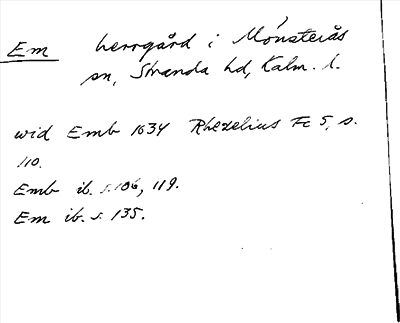 Em herrgård i Mönsterås
sn, Stranda hd, Kalm. l.
wid Emb 1634 Rhezelius Fc 5, s.
110.
Emb ib. s. 106, 119.
Em ib. s. 135.